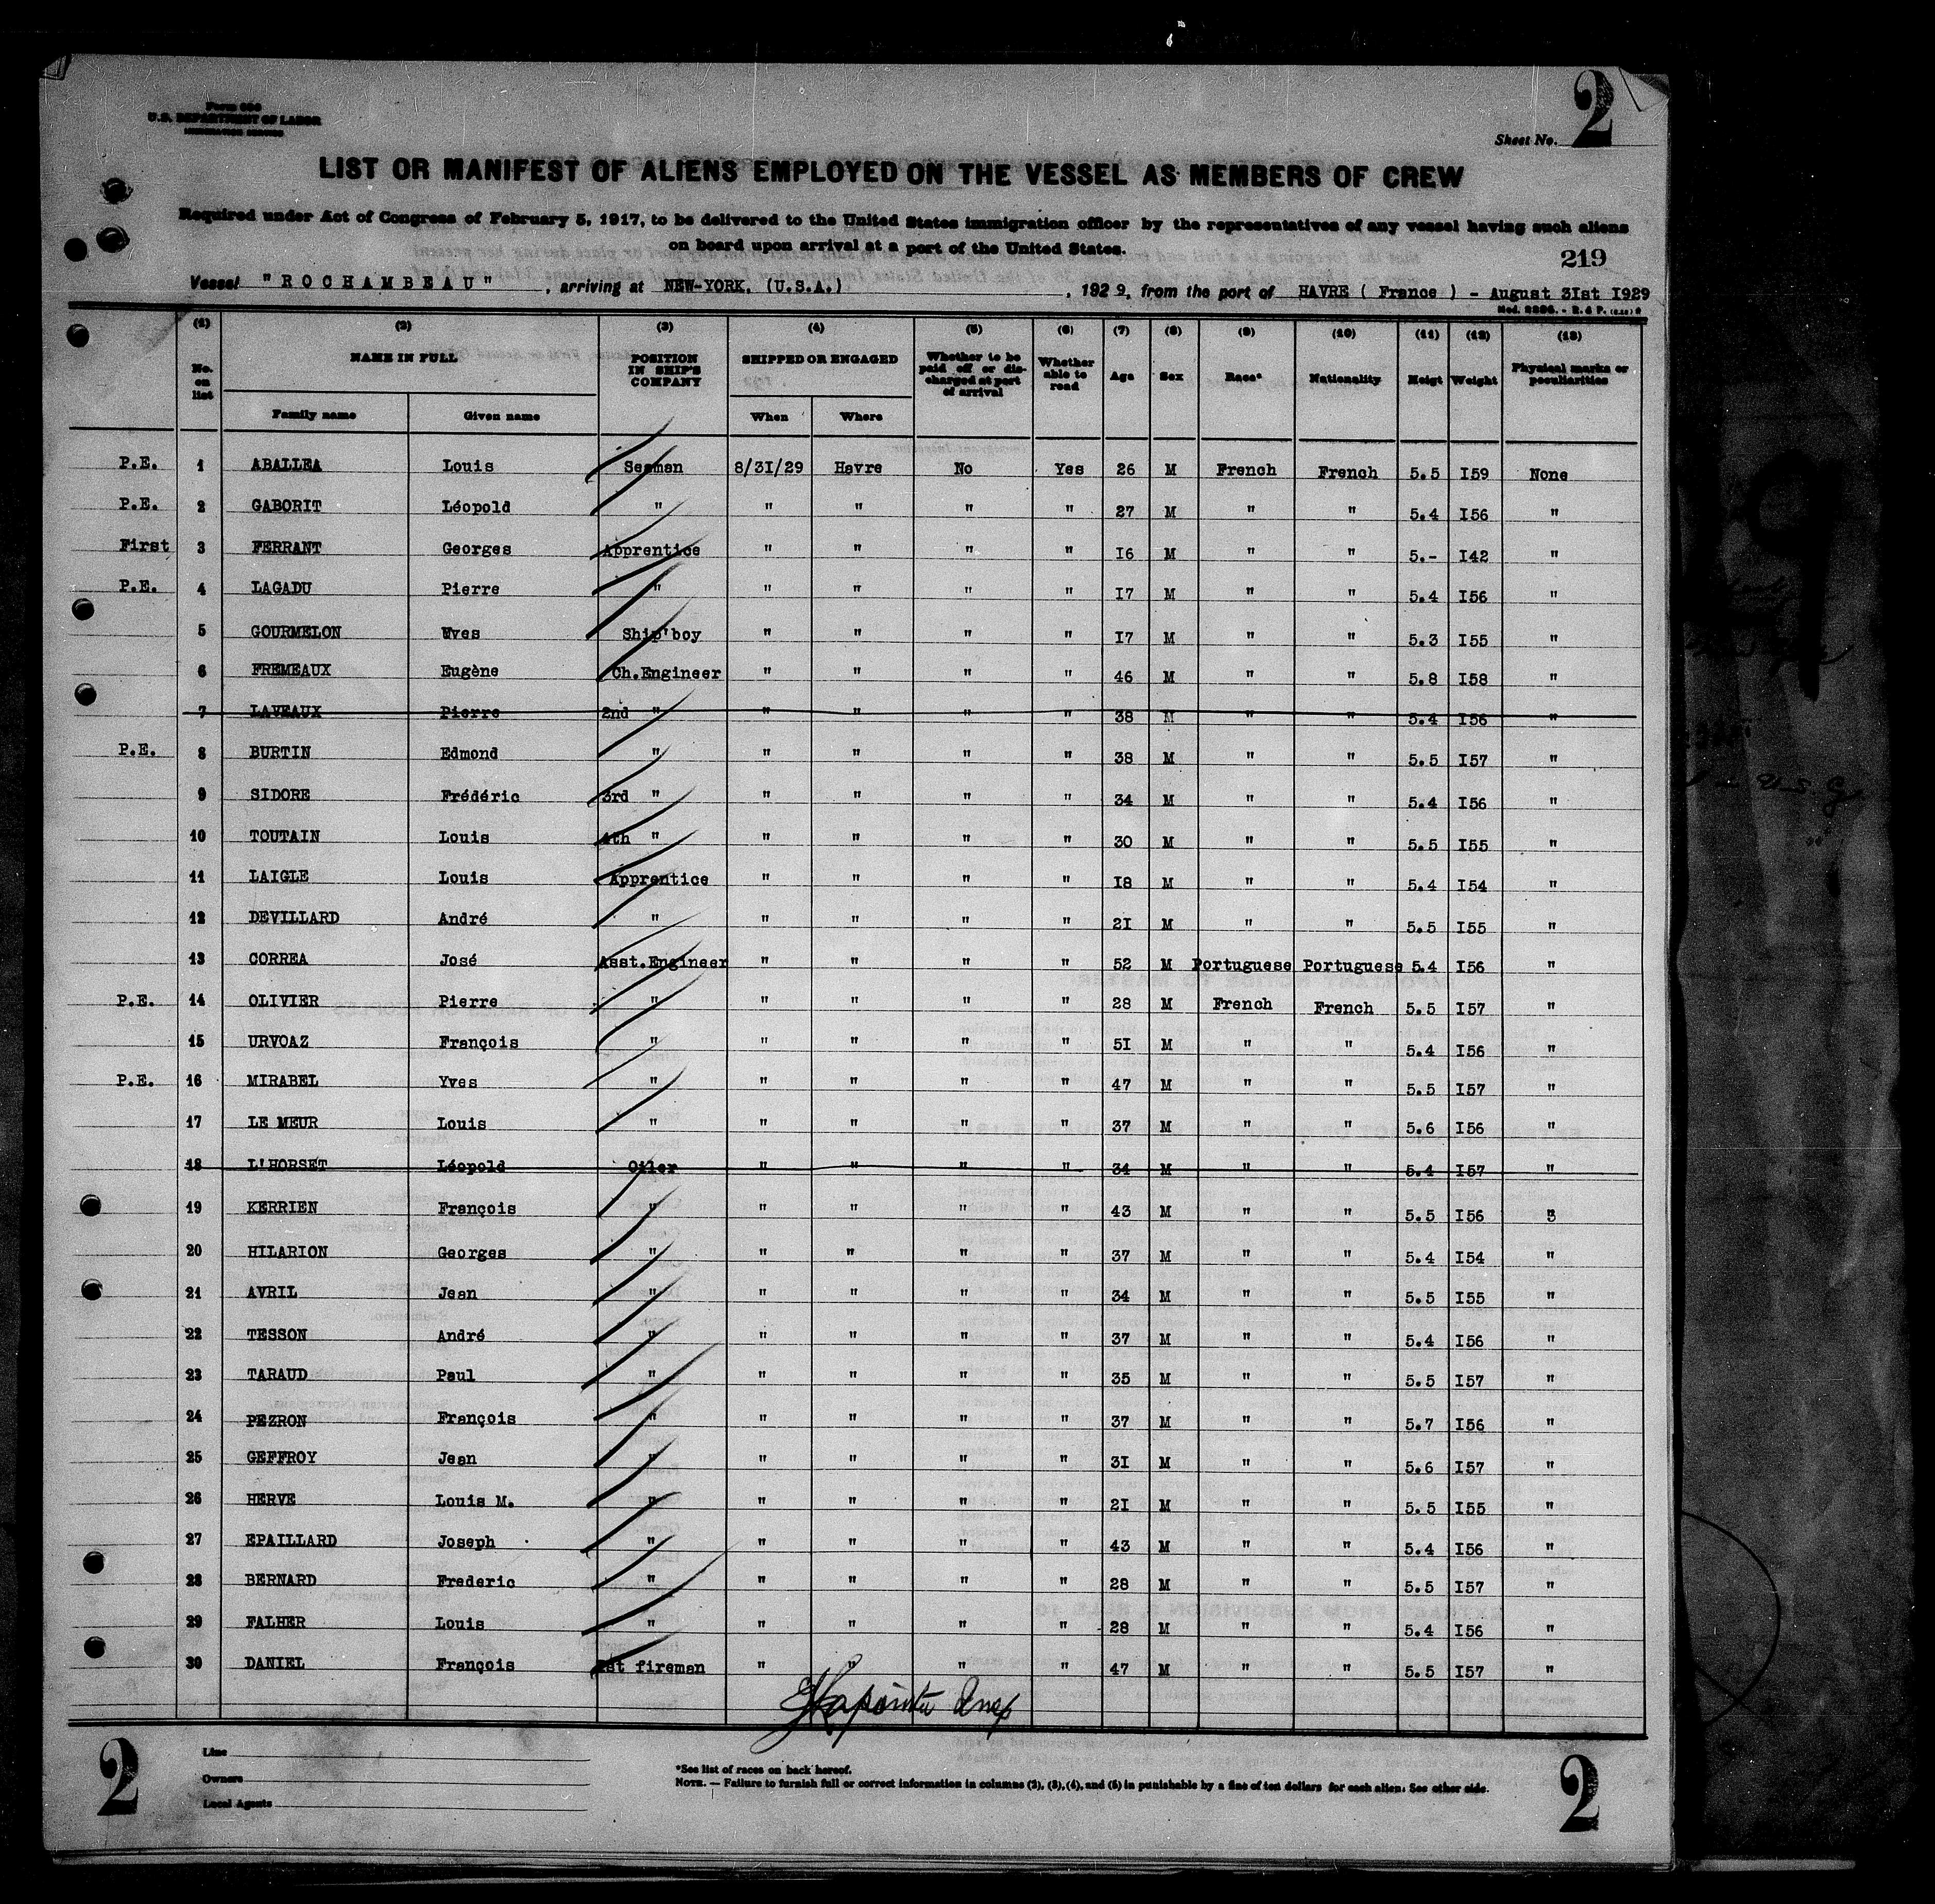 Form 680
U.S. DEPARTMENT OF LABOR
IMMIGRATION SERVICE
Sheet No. 2
LIST OR MANIFEST OF ALIENS EMPLOYED ON THE VESSEL AS MEMBERS OF CREW
Required under Act of Congress of February 5, 1917, to be delivered to the United States immigration officer by the representatives of any vessel having such aliens
on board upon arrival at a port of the United States.
219
Vessel "ROCHAMBEAU", arriving at NEW-YORK, (U.S.A.), 1929, from the port of HAVRE ( France ) - August 3Ist I929
(1) (2) (3) (4) (5) (6) (7) (8) (9) (10) (11) (12) (13)
No. on list NAME IN FULL POSITION IN SHIP'S COMPANY SHIPPED OR ENGAGED Whether to be paid off or discharged at port of arrival Whether able to read Age Sex Race* Nationality Heigt Weight Physical marks or peculiarities
Family name Given name When Where
P.E. 1 ABALLEA Louis Seaman 8/3I/29 Havre No Yes 26 M French French 5.5 I59 None
P.E. 2 GABORIT Léopold " " " " " 27 M " " 5.4 I56 "
First 3 FERRANT Georges Apprentice " " " " I6 M " " 5.- I42 "
P.E. 4 LAGADU Pierre " " " " " I7 M " " 5.4 I56 "
5 GOURMELON Yves Ship'boy " " " " I7 M " " 5.3 I55 "
6 FREMEAUX Eugène Ch.Engineer " " " " 46 M " " 5.8 I58 "
7 LAVEAUX Pierre 2nd " " " " " 38 M " " 5.4 I56 "
P.E. 8 BURTIN Edmond " " " " " 38 M " " 5.5 I57 "
9 SIDORE Frédéric 3rd " " " " " 34 M " " 5.4 I56 "
10 TOUTAIN Louis 4th " " " " " 30 M " " 5.5 I55 "
11 LAIGLE Louis Apprentice " " " " I8 M " " 5.4 I54 "
12 DEVILLARD André " " " " " 2I M " " 5.5 I55 "
13 CORREA José Asst.Engineer " " " " 52 M Portuguese Portuguese 5.4 I56 "
P.E. 14 OLIVIER Pierre " " " " " 28 M French French 5.5 I57 "
15 URVOAZ François " " " " " 5I M " " 5.4 I56 "
P.E. 16 MIRABEL Yves " " " " " 47 M " " 5.5 I57 "
17 LE MEUR Louis " " " " " 37 M " " 5.6 I56 "
18 L'HORSET Léopold Oiler " " " " 34 M " " 5.4 I57 "
19 KERRIEN François " " " " " 43 M " " 5.5 I56 3
20 HILARION Georges " " " " " 37 M " " 5.4 I54 "
21 AVRIL Jean " " " " " 34 M " " 5.5 I55 "
22 TESSON André " " " " " 37 M " " 5.4 I56 "
23 TARAUD Paul " " " " " 35 M " " 5.5 I57 "
24 PEZRON François " " " " " 37 M " " 5.7 I56 "
25 GEFFROY Jean " " " " " 3I M " " 5.6 I57 "
26 HERVE Louis M. " " " " " 2I M " " 5.5 I55 "
27 EPAILLARD Joseph " " " " " 43 M " " 5.4 I56 "
28 BERNARD Frederic " " " " " 28 M " " 5.5 I57 "
29 FALHER Louis " " " " " 28 M " " 5.4 I56 "
30 DANIEL François Ist fireman " " " " 47 M " " 5.5 I57 "
2
Line
Owners
Local Agents
*See list of races on back hereof.
NOTE. — Failure to furnish full or correct information in columns (2), (3), (4), and (5) in punishable by a fine of ten dollars for each alien. See other side.
2